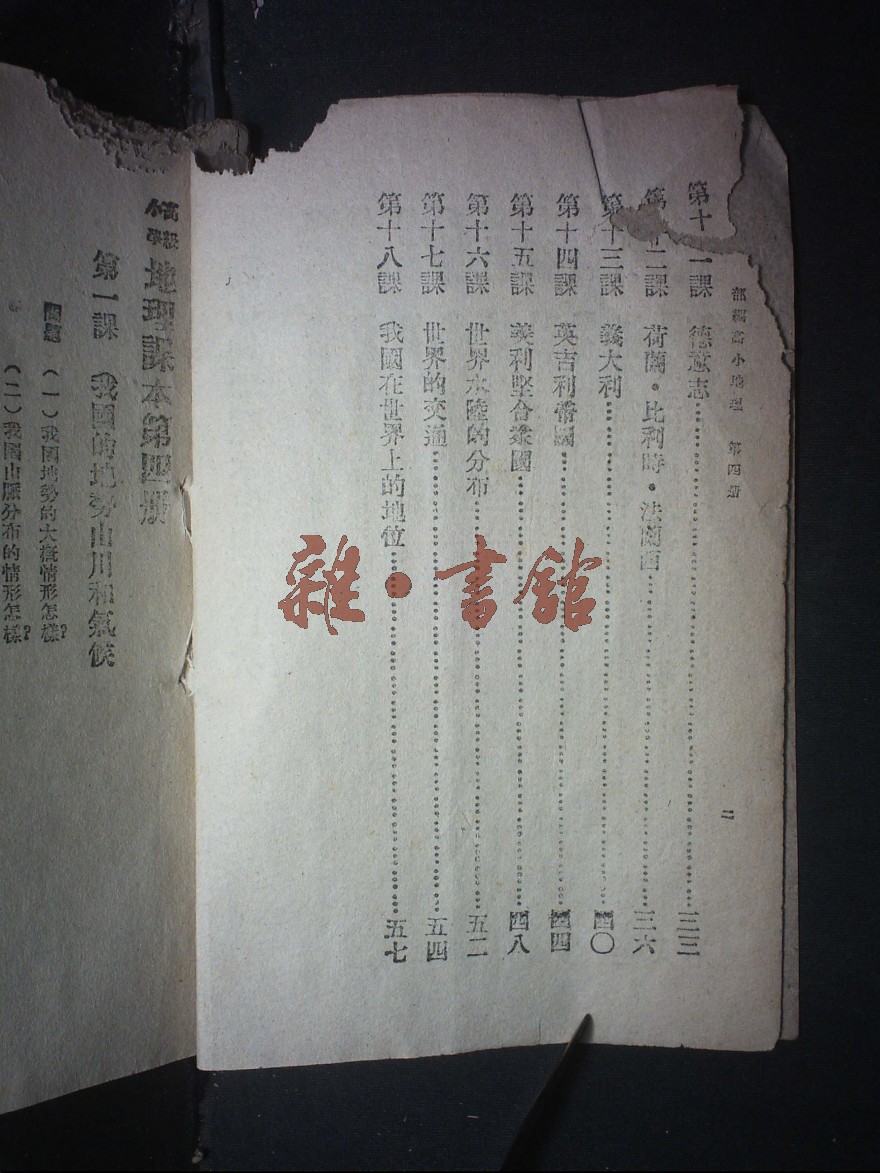 部編高小地理 第四册 二
第十一課 德意志……三三
第十二課 荷蘭·比利時·法蘭西……三六
第十三課 義大利……四〇
第十四課 英吉利帝國……四四
第十五課 美利堅合衆國……四八
第十六課 世界水陸的分布……五二
第十七課 世界的交通……五四
第十八課 我國在世界上的地位……五七
高級小學 地理課本第四册
第一課 我國的地勢山川和氣候
問題 (一)我國地勢的大概情形怎樣?
(二)我國山脈分布的情形怎樣?
雜·書館